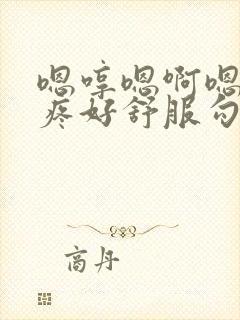 嗯哼嗯啊嗯
疼好舒服勾
商丹